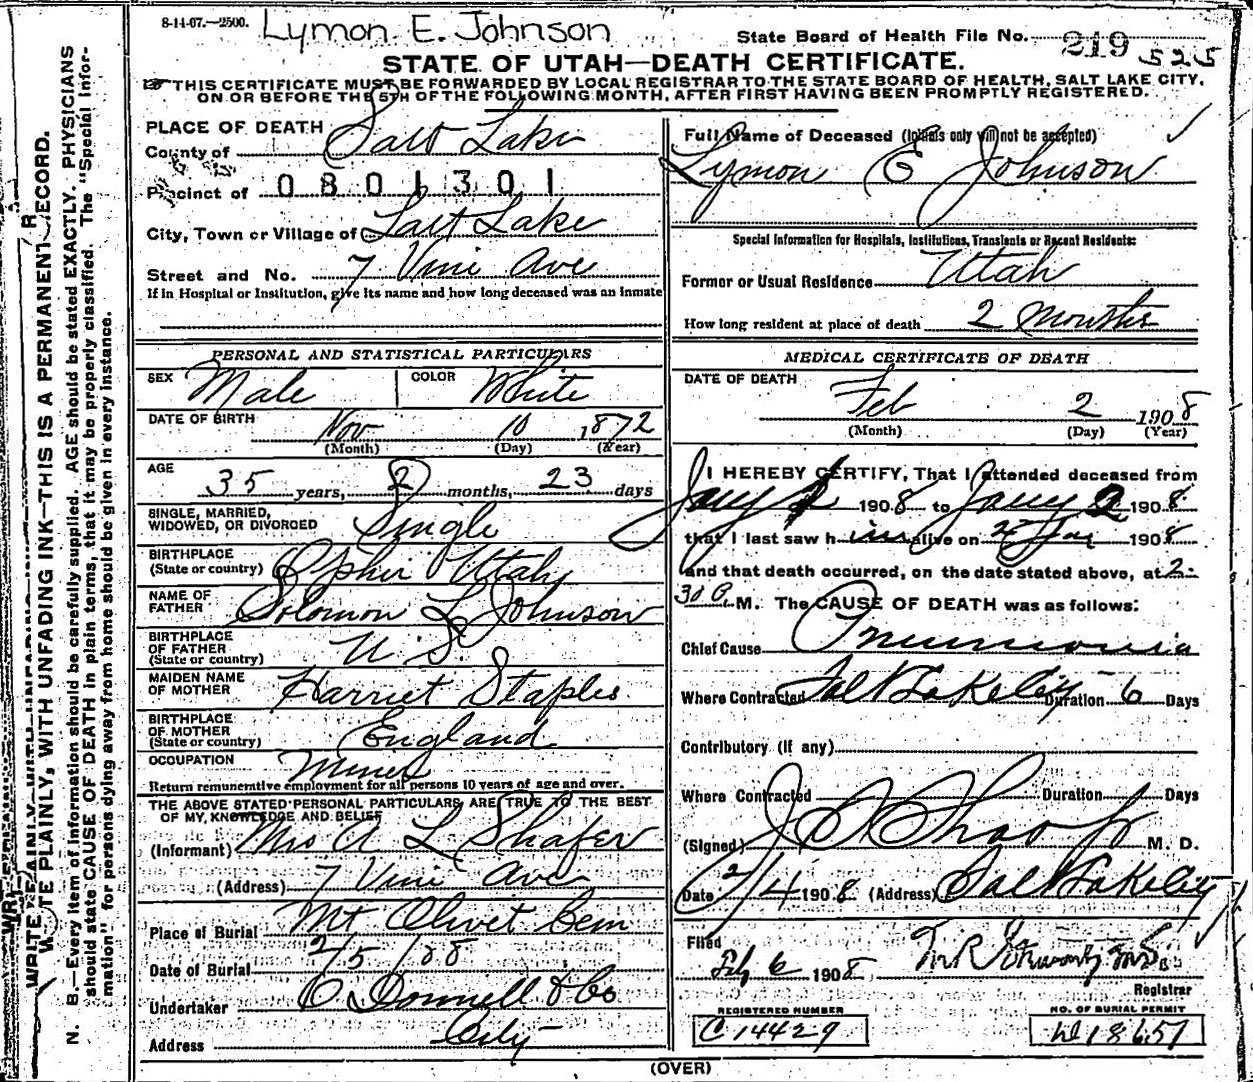 8-14-07.—2500. Lymon. E. Johnson
State Board of Health File No. 219 525
STATE OF UTAH—DEATH CERTIFICATE.
THIS CERTIFICATE MUST BE FORWARDED BY LOCAL REGISTRAR TO THE STATE BOARD OF HEALTH, SALT LAKE CITY,
ON OR BEFORE THE 5TH OF THE FOLLOWING MONTH, AFTER FIRST HAVING BEEN PROMPTLY REGISTERED.
WRITE PLAINLY, WITH UNFADING INK—THIS IS A PERMANENT RECORD.
N. B.—Every item of information should be carefully supplied. AGE should be stated EXACTLY. PHYSICIANS
should state CAUSE OF DEATH in plain terms, that it may be properly classified. The "Special Infor-
mation" for persons dying away from home should be given in every instance.
PLACE OF DEATH
County of Salt Lake
Precinct of 0801301
City, Town or Village of Salt Lake
Street and No. 7 Vini Ave
If in Hospital or Institution, give its name and how long deceased was an inmate
PERSONAL AND STATISTICAL PARTICULARS
SEX Male COLOR White
DATE OF BIRTH Nov 10 1872
(Month) (Day) (Year)
AGE 35 years, 2 months, 23 days
SINGLE, MARRIED,
WIDOWED, OR DIVORCED Single
BIRTHPLACE
(State or country) Ophir Utah
NAME OF
FATHER Solomon L Johnson
BIRTHPLACE
OF FATHER
(State or country) U. S.
MAIDEN NAME
OF MOTHER Harriet Staples
BIRTHPLACE
OF MOTHER
(State or country) England
OCCUPATION Miner
Return remunerative employment for all persons 10 years of age and over.
THE ABOVE STATED PERSONAL PARTICULARS ARE TRUE TO THE BEST
OF MY KNOWLEDGE AND BELIEF
(Informant) Mrs A L Shafer
(Address) 7 Vini Ave
Place of Burial Mt Olivet Cem
Date of Burial 2/5/08
Undertaker O Donnell & Co
Address City
Full Name of Deceased (Initials only will not be accepted)
Lymon E Johnson
Special Information for Hospitals, Institutions, Transients or Recent Residents:
Former or Usual Residence Utah
How long resident at place of death 2 Months
MEDICAL CERTIFICATE OF DEATH
DATE OF DEATH
Feb 2 1908
(Month) (Day) (Year)
I HEREBY CERTIFY, That I attended deceased from
Jany 1908 to Jany 2 1908
that I last saw him alive on 2 Jan 1908
and that death occurred, on the date stated above, at 2-
30 P.M. The CAUSE OF DEATH was as follows:
Chief Cause Pneumonia
Where Contracted Salt Lake City Duration 6 Days
Contributory (if any)
Where Contracted Duration Days
(Signed) M. D.
Date 2/4 1908 (Address) Salt Lake City
Filed
Feb 6 1908
Registrar
REGISTERED NUMBER
C 14429
NO. OF BURIAL PERMIT
18651
(OVER)